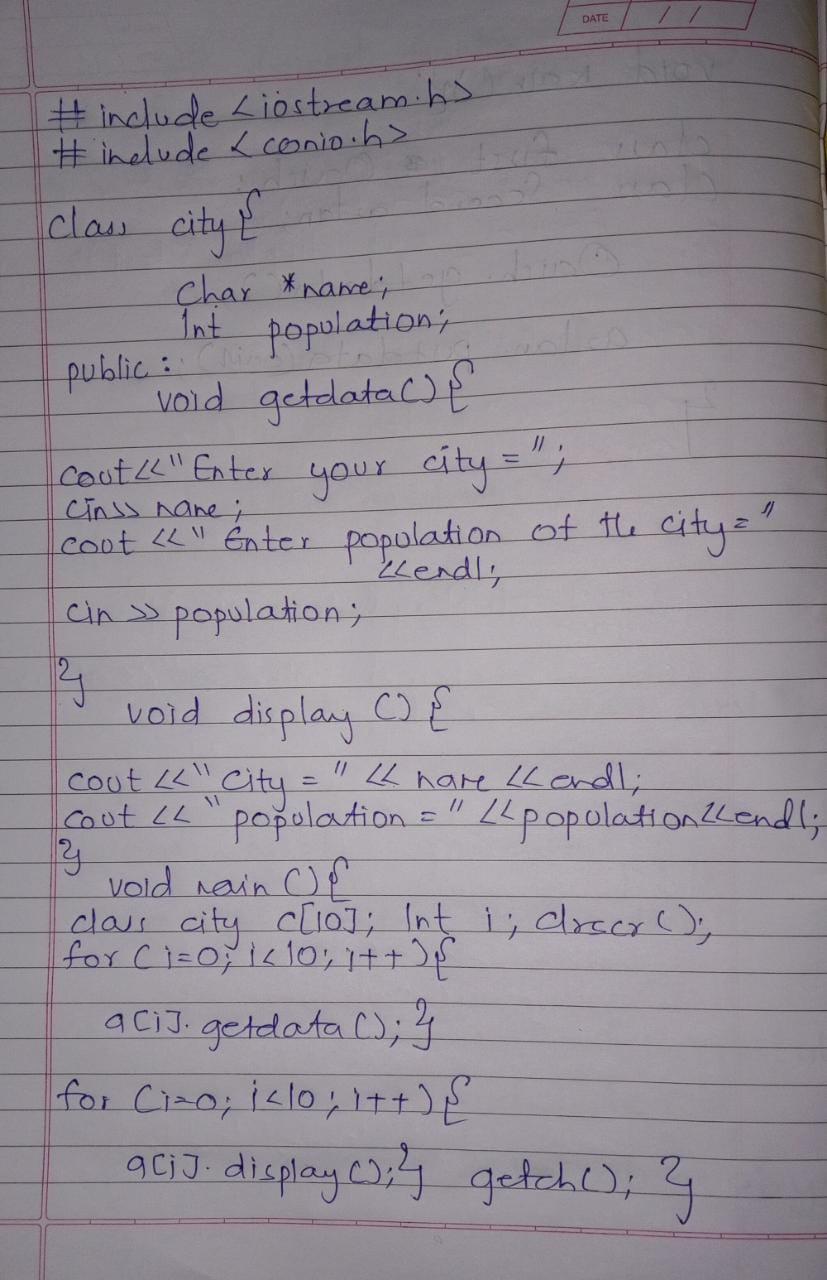 DATE / /
# include <iostream.h>
# include <conio.h>
class city {
char *name;
int population;
public :
void getdata() {
cout<<"Enter your city = ";
cin>> name;
cout <<" Enter population of the city = "
<<endl;
cin >> population;
}
void display () {
cout <<" City = " << name << endl;
cout << " population = " << population<<endl;
}
void main () {
class city c[10]; int i; clrscr();
for (i=0; i<10; i++) {
a[i]. getdata(); }
for (i=0; i<10; i++) {
a[i]. display(); } getch(); }